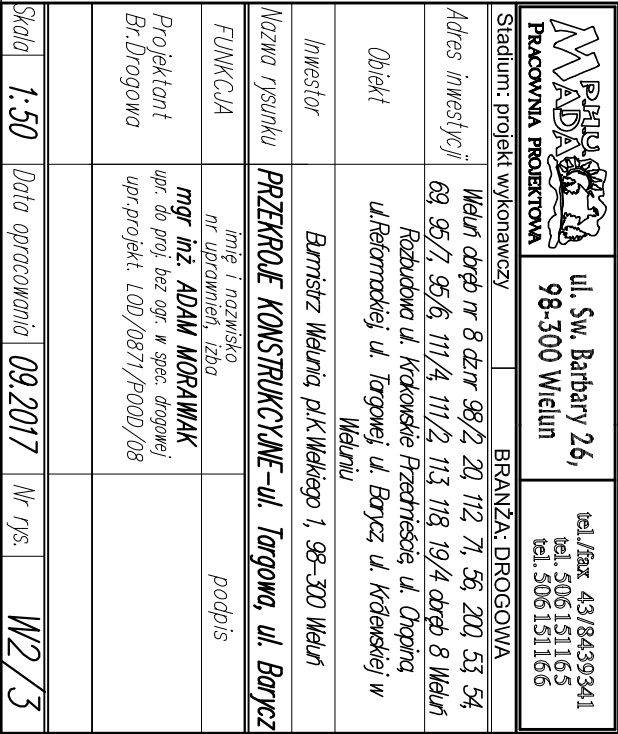 PHU
MADA
PRACOWNIA PROJEKTOWA
ul. Sw. Barbary 26,
98-300 Wielun
tel./fax 43/8439341
tel. 506151165
tel. 506151166
Stadium: projekt wykonawczy
BRANŻA: DROGOWA
Adres inwestycji
Weluń obręb nr 8 dz.nr 98/2, 20, 112, 71, 56, 200, 53, 54,
69, 95/7, 95/6, 111/4, 111/2, 113, 118, 19/4 obręb 8 Weluń
Obiekt
Rozbudowa ul. Krakowskie Przedmieście, ul. Chopina,
ul.Reformackiej, ul. Targowej, ul. Barycz, ul. Królewskiej w
Weluniu
Inwestor
Burmistrz Welunia, pl.K.Welkiego 1, 98-300 Weluń
Nazwa rysunku
PRZEKROJE KONSTRUKCYJNE-ul. Targowa, ul. Barycz
FUNKCJA
imię i nazwisko
nr uprawnień, izba
podpis
Projektant
Br.Drogowa
mgr inż. ADAM MORAWIAK
upr. do proj. bez ogr. w spec. drogowej
upr.projekt. LOD/0871/POOD/08
Skala
1:50
Data opracowania
09.2017
Nr rys.
W2/3